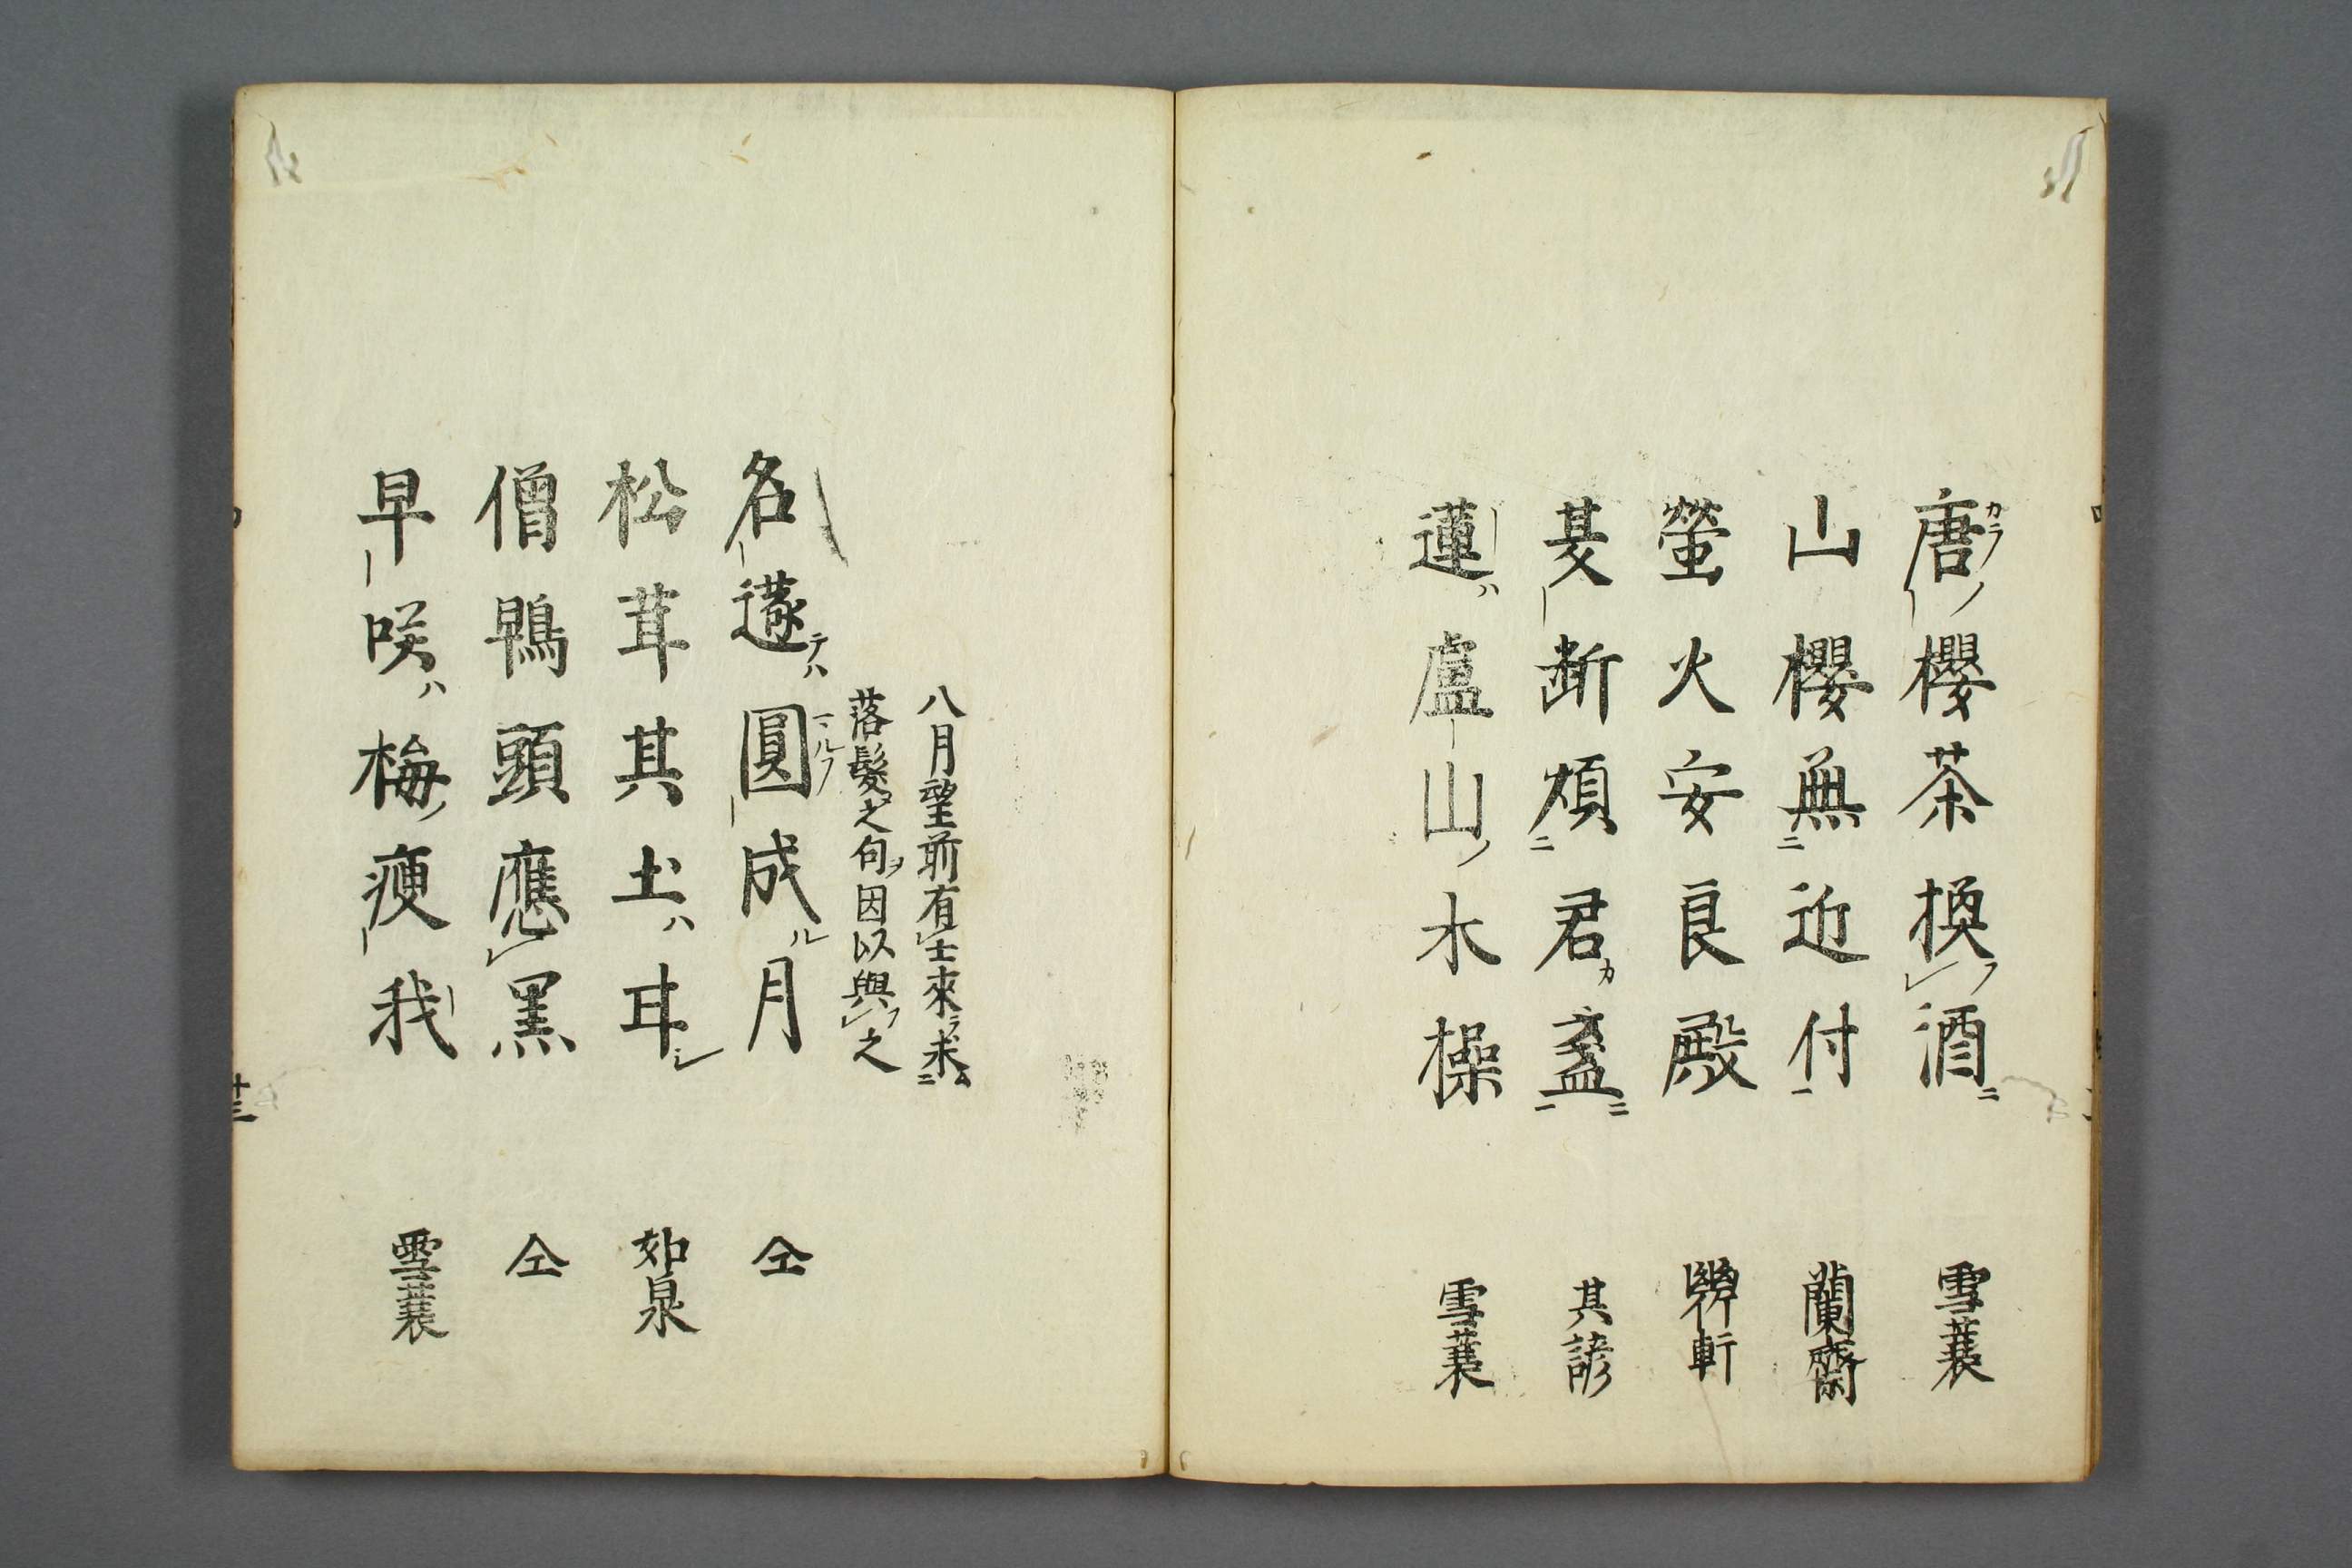 唐櫻茶換酒 雪蓑
山櫻無近付 蘭齋
螢火安良殿 軒
断煩君盞 其諺
蓮盧山木操 雪蓑
八月望前有士來求
落髮之句因以與之
名遂圓成月 仝
松茸其土耳 如泉
僧鴨頭應黒 仝
早咲梅痩我 雪蓑
十三